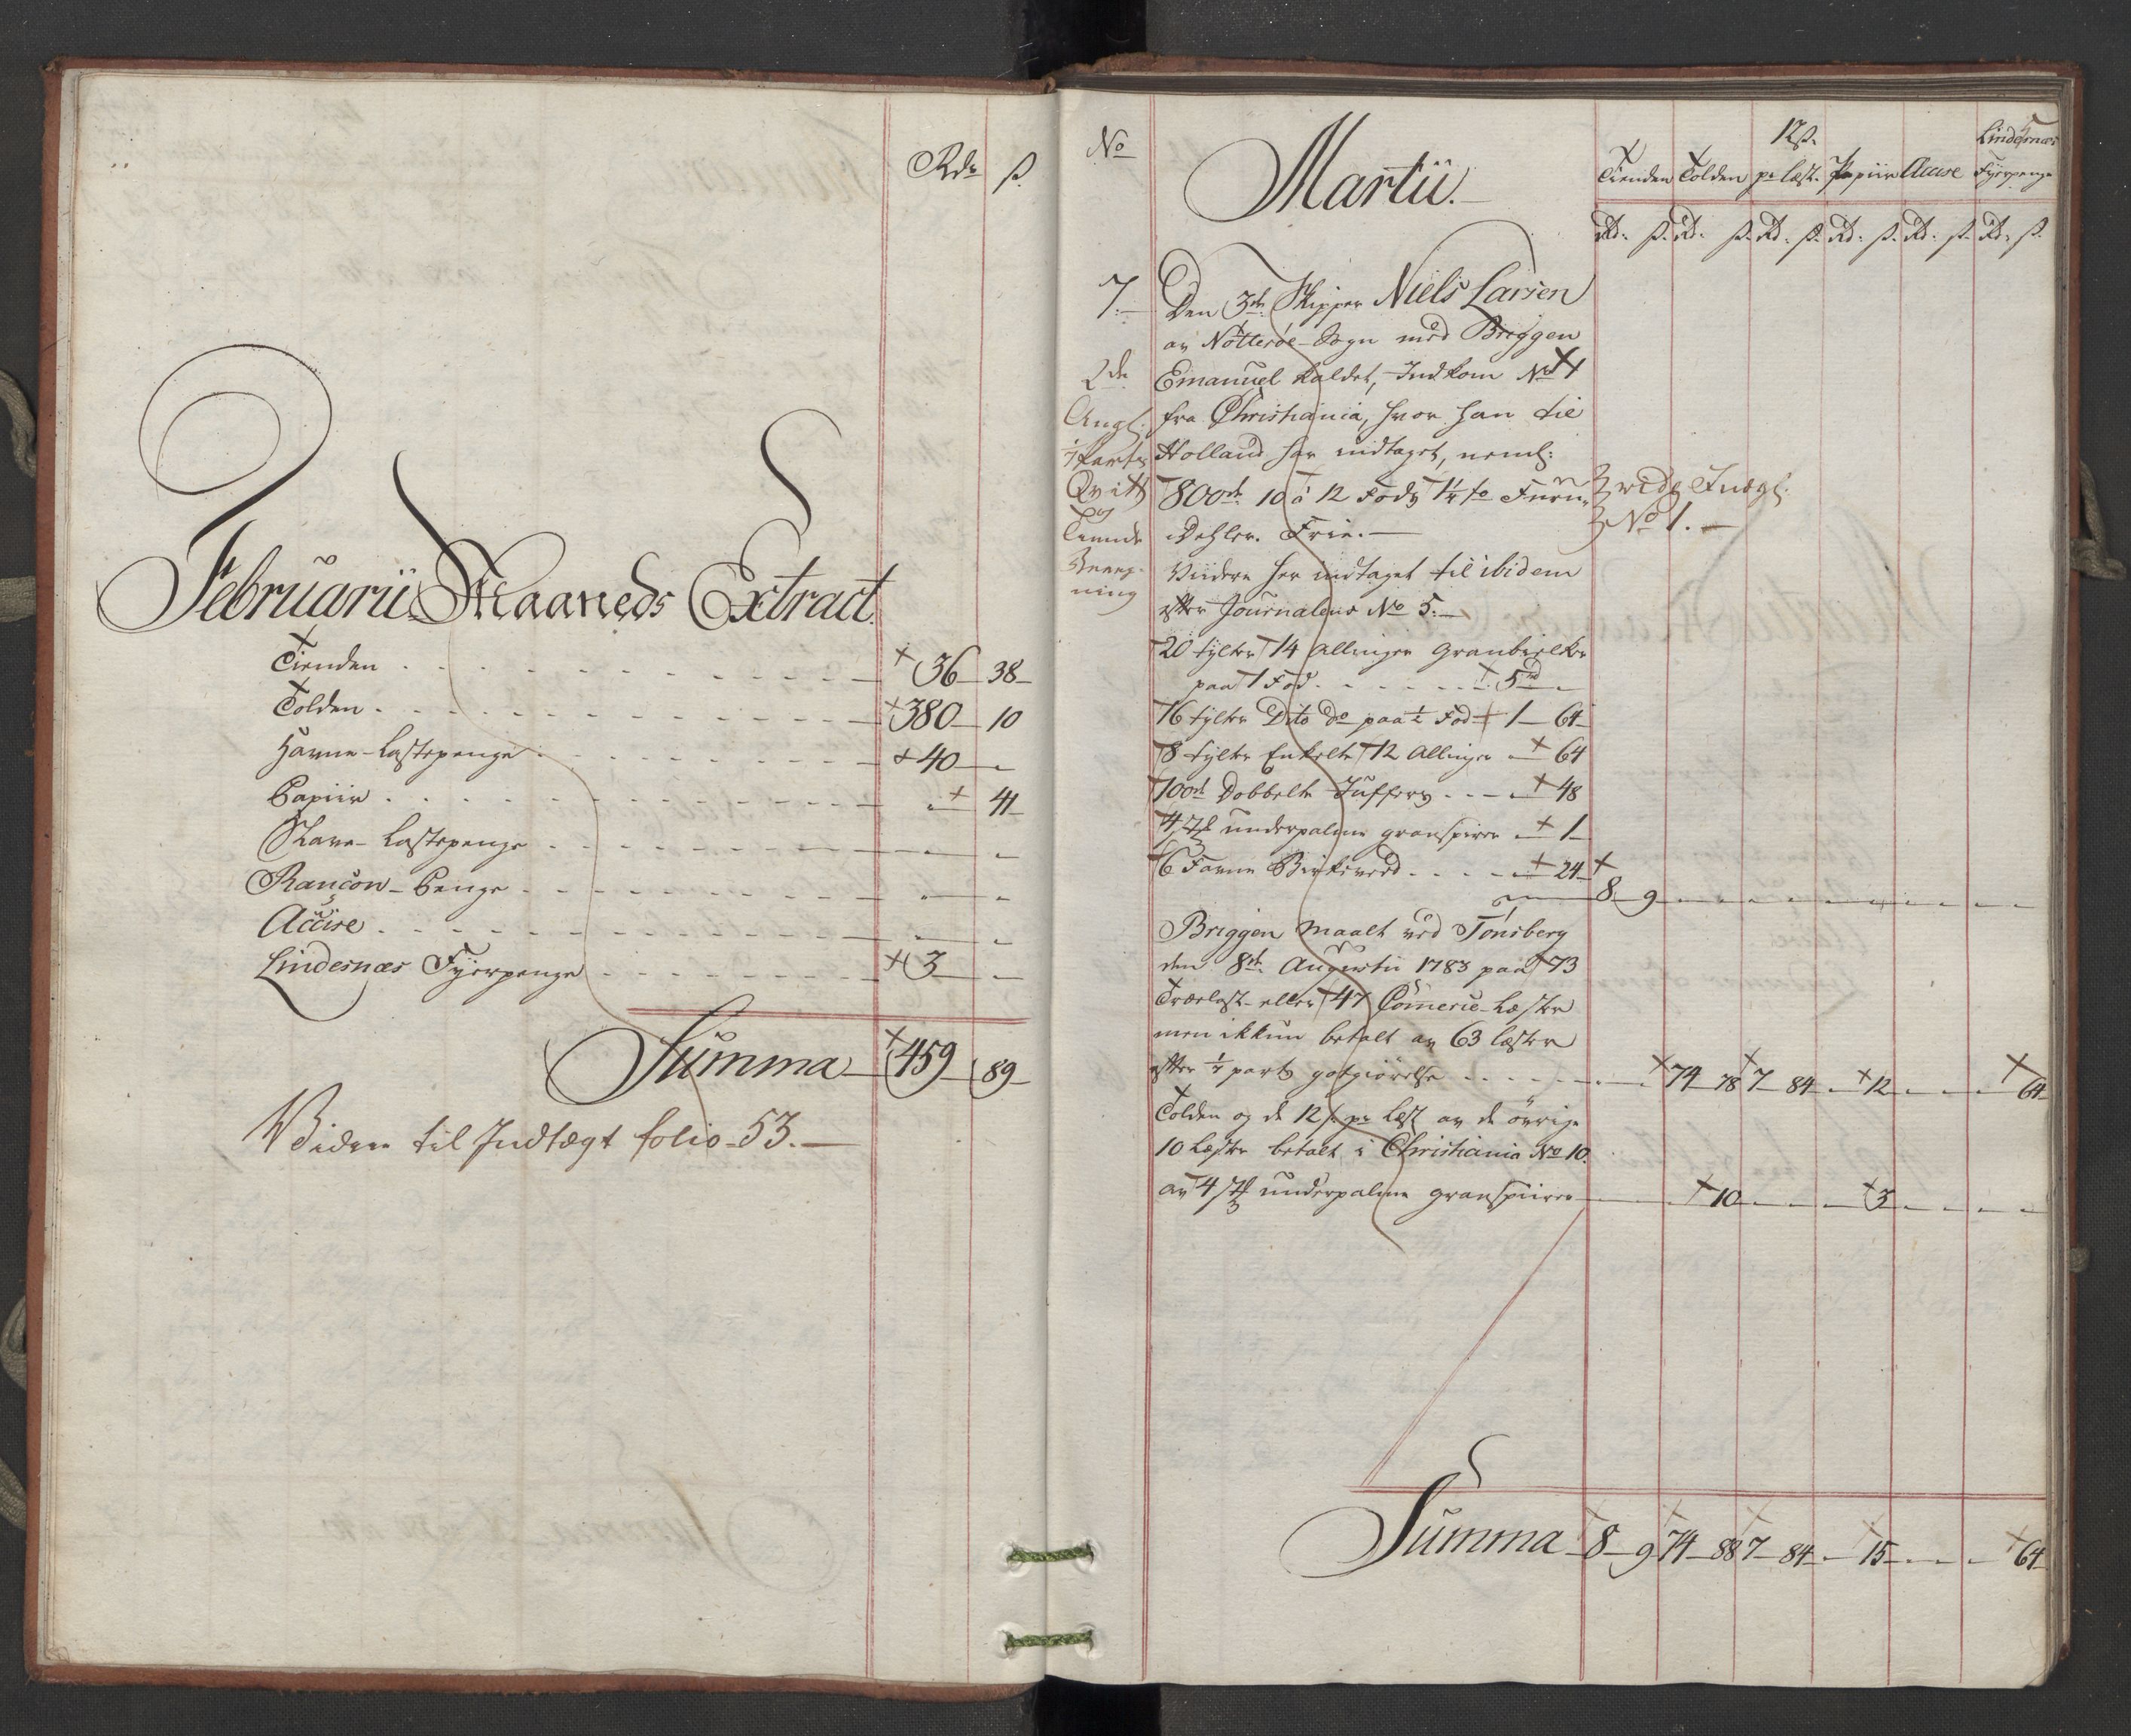 Rdr ß.
Februarii Maaneds Extract.
Tienden 36 38
Tolden 380 10
Havne-Lastepenge 40
Papiir 41
Slave-Lastepenge
Rancon-Penge
Accise
Lindesnæs Fyerpenge 3
Summa 459 89
Vidre til Indtægt folio 53.
No
Martii.
12ß. Lindesnæs
Tienden Tolden pr Læst. Papiir Accise Fyerpenge
Rd. ß. Rd. ß. Rd. ß. Rd. ß. Rd. ß. Rd. ß.
7. Den 3de Skipper Niels Larsen
av Nötteröe-Sogn med Briggen
2de Emanuel kaldet, Indkom No 4
Angl. fra Christiania, hvor han til
Holland har indtaget, neml:
800de 10 á 12 Fods 1 1/4 to Furu vide Indgl.
Dehler. Frie. No 1.
Tiende
Viidere her indtaget til ibidem
efter Journalens No 5.
20 tylter 14 Allinger Granbielker
paa 1 Fod 5
16 tylter Dito do paa 1/2 Fod 1 64
8 tylter Enkelte 12 Allinger 64
100de Dobbelte Juffers 48
4 underpalme granspirer 1
6 Favne Birkeved 24
8 9
Briggen maalt ved Tönsberg
den 8de Augustii 1783 paa 73
Trælast- eller 47 Comerce-Læster
men ikkun betalt av 63 læster
efter 1/4 parts godgiörelse 74 78 7 84 12 64
Tolden og de 12 ß. pr Læst av de övrige
10 Læster betalt i Christiania No 10.
av 4 underpalme granspiirer 10 3
Summa 8 9 74 88 7 84 15 64